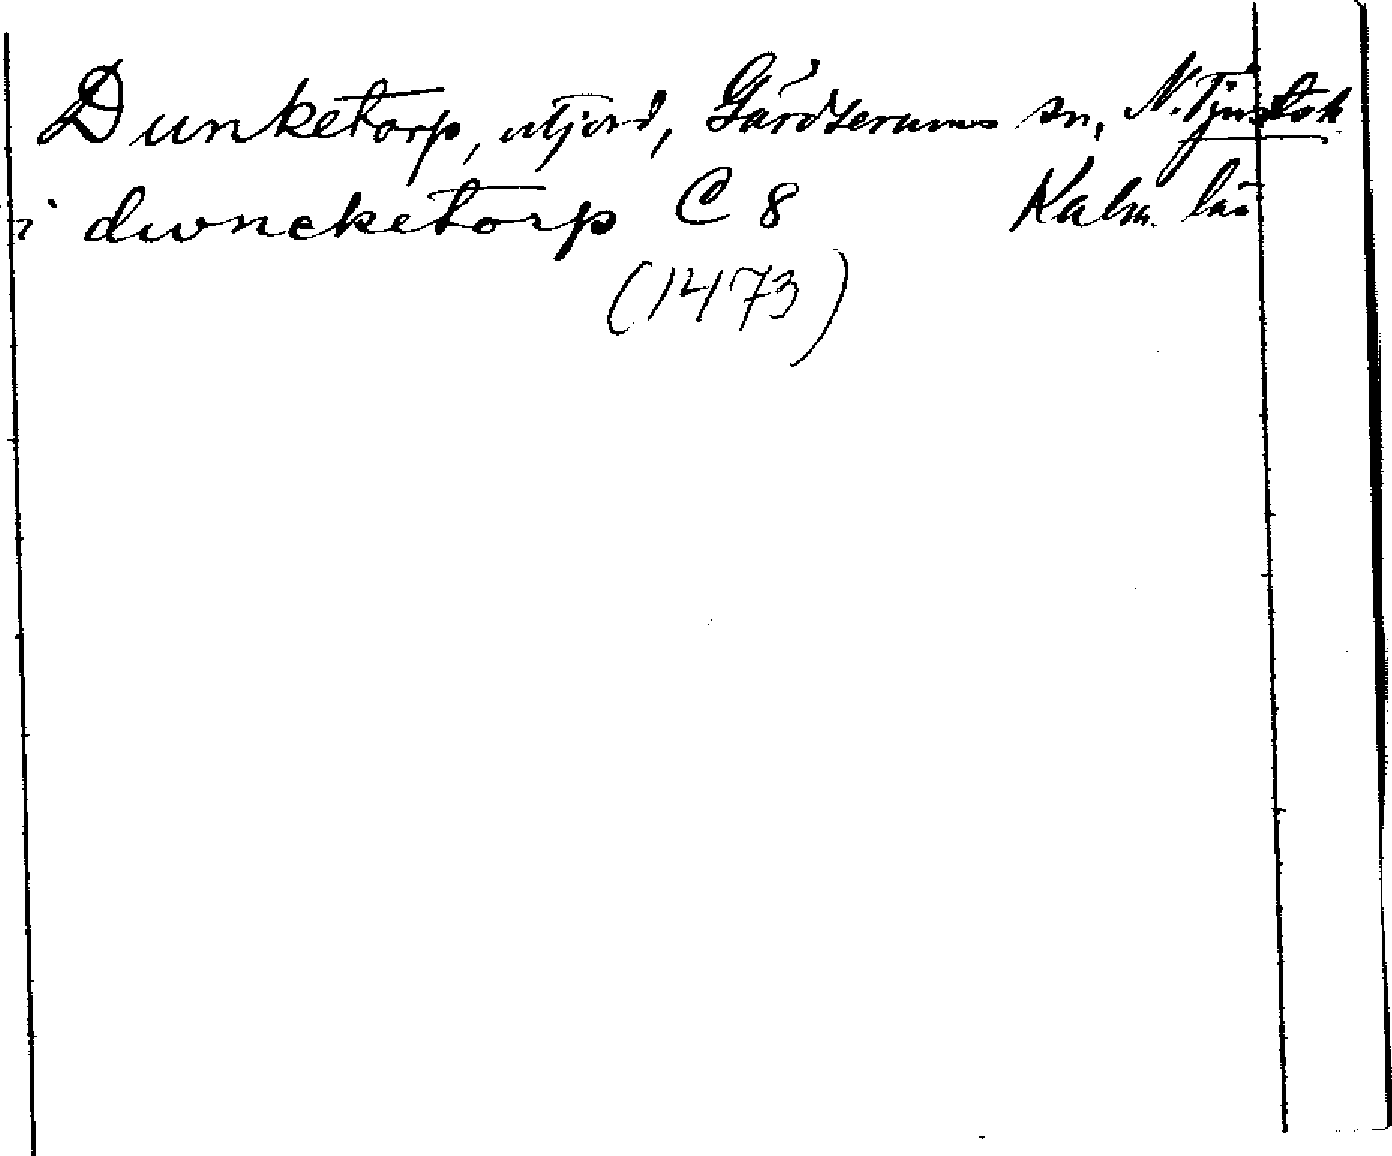 Dunketorp, utjord, Gärdserums sn, N. Tjust h
i dwncketorp C 8 Kalm. län
(1473)